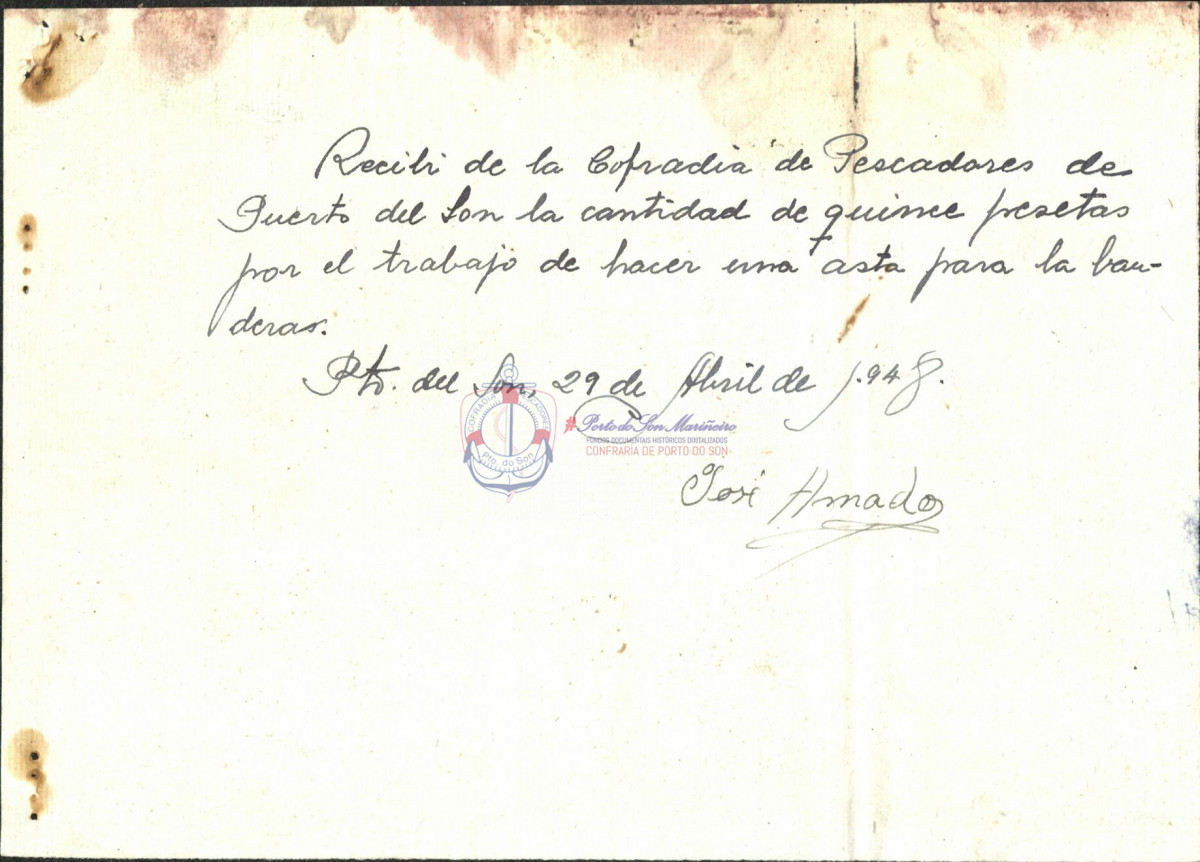 Recibi de la Cofradia de Pescadores de
Puerto del Son la cantidad de quince pesetas
por el trabajo de hacer una asta para la ban-
deras.
Pto. del Son, 29 de Abril de 1.948.
COFRADIA PESCADORES
Pto. do Son
#Porto do Son Mariñeiro
FUNDOS DOCUMENTAIS HISTÓRICOS DIXITALIZADOS
CONFRARIA DE PORTO DO SON
José Amado